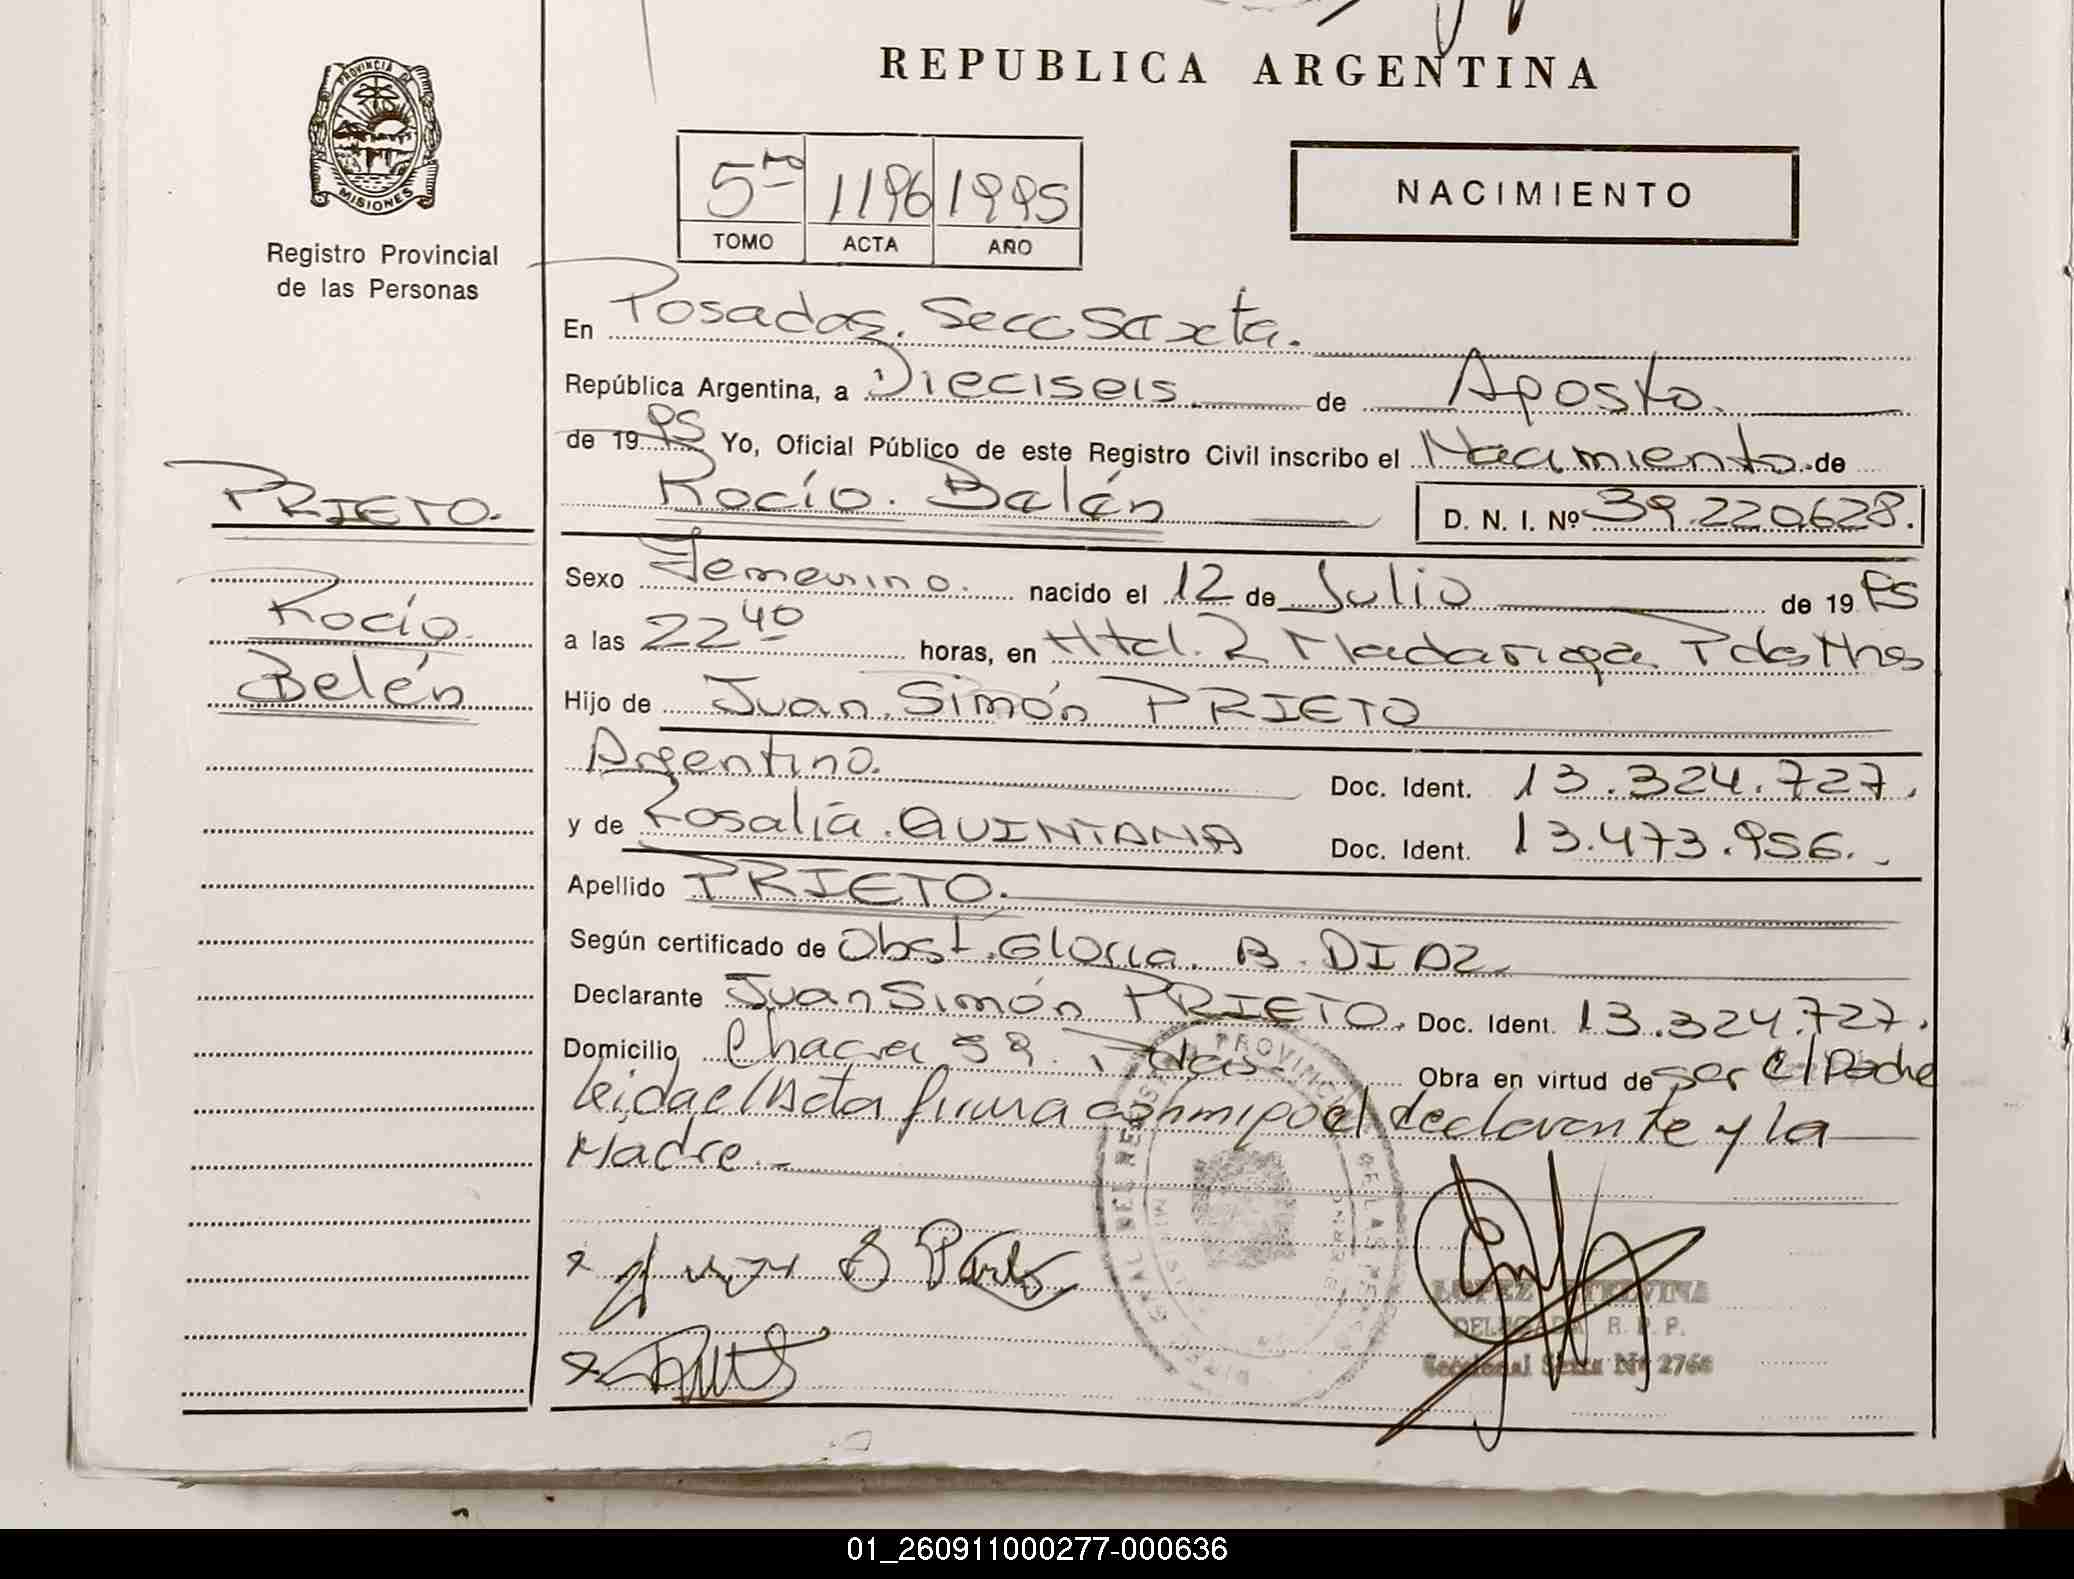 REPUBLICA ARGENTINA
PROVINCIA DE
MISIONES
Registro Provincial
de las Personas
5to 1196 1995
TOMO ACTA AÑO
NACIMIENTO
En Posadas. Secc Sexta.
República Argentina, a Dieciseis de Agosto.
de 19 95 Yo, Oficial Público de este Registro Civil inscribo el Nacimiento de
Rocío. Belén D. N. I. Nº 39.220.628.
PRIETO.
Rocío
Belén
Sexo Femenino. nacido el 12 de Julio de 19 95
a las 22 40 horas, en Htal. R Madariaga Pdas Mnes
Hijo de Juan. Simón PRIETO
Argentino. Doc. Ident. 13.324.727.
y de Rosalía. QUINTANA Doc. Ident. 13.473.956.
Apellido PRIETO.
Según certificado de Obst. Gloria. B. DIAZ
Declarante Juan Simón PRIETO. Doc. Ident. 13.324.727.
Domicilio Chacra 59. Pdas. Obra en virtud de ser el Padre
leida el Acta firma conmigo el declarante y la
Madre.-
LOPEZ ETELVINA
DELEGADA R. P. P.
Seccional Sexta Nº 2766
01_260911000277-000636